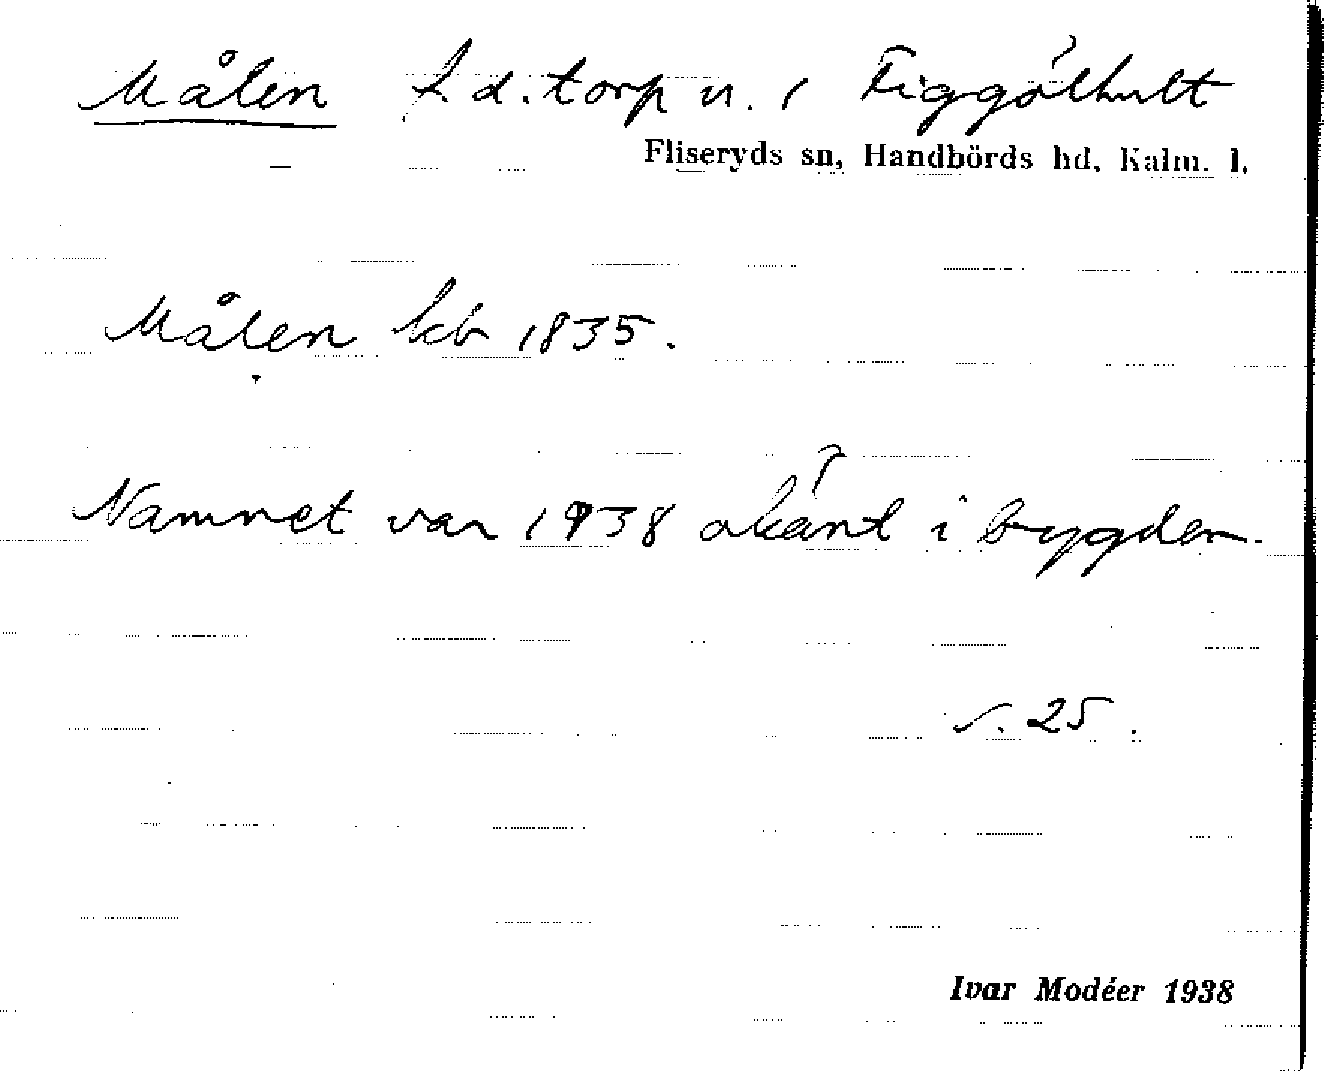 Målen f.d. torp u. 1 Figgölhult
Fliseryds sn, Handbörds hd, Kalm. l.
Målen kb 1835.
Namnet var 1938 okänt i bygden.
s. 25.
Ivar Modéer 1938